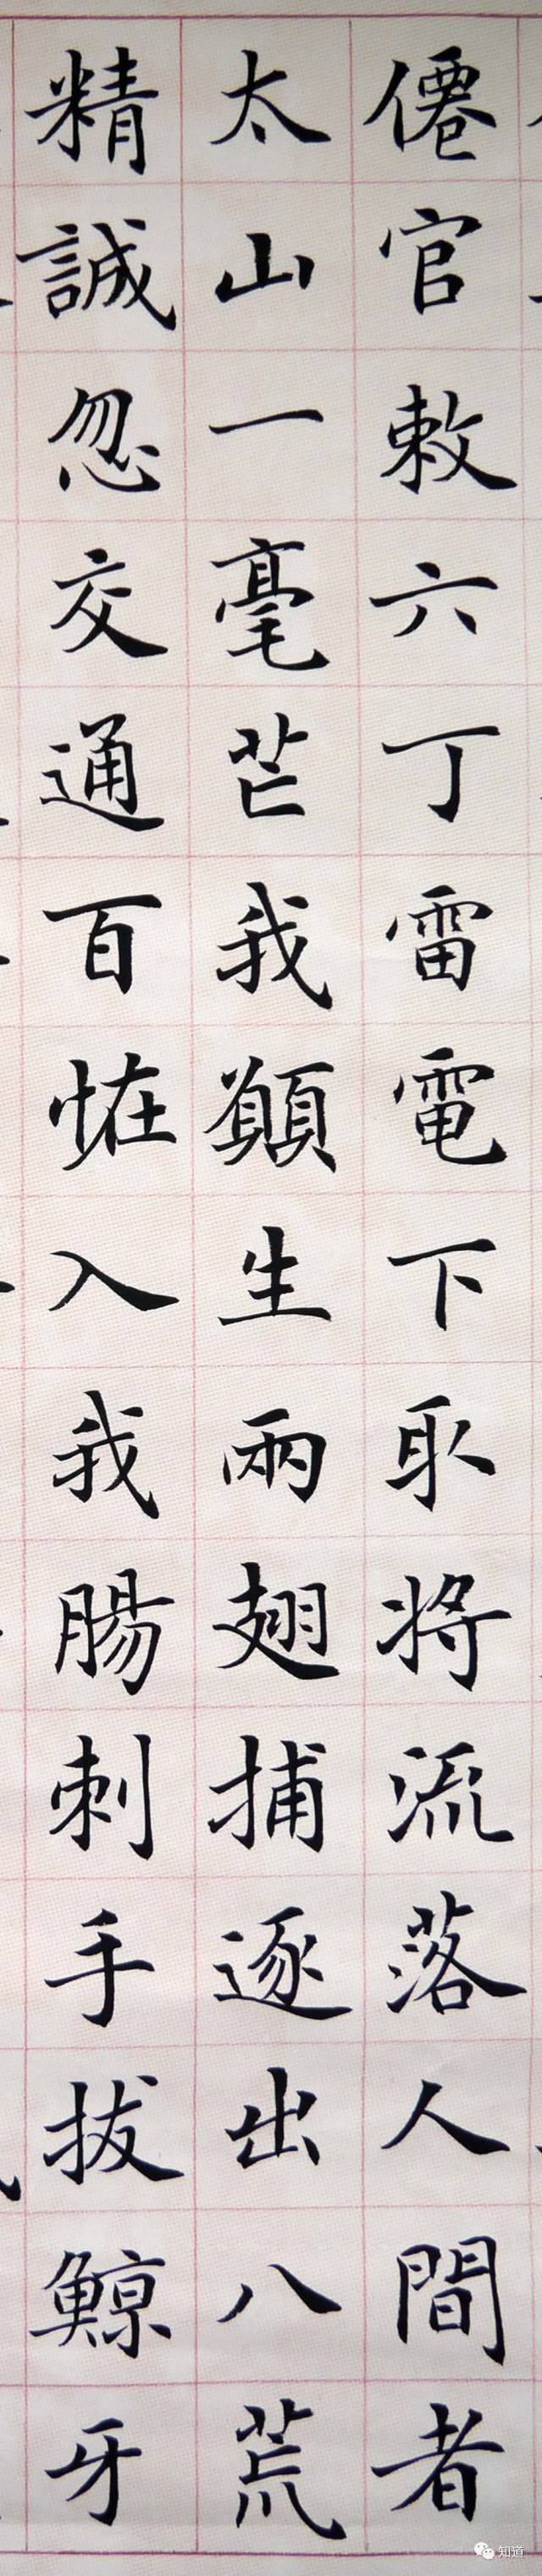 僊官敕六丁雷電下取将流落人間者
太山一毫芒我願生兩翅捕逐出八荒
精誠忽交通百恠入我腸刺手拔鯨牙
知道